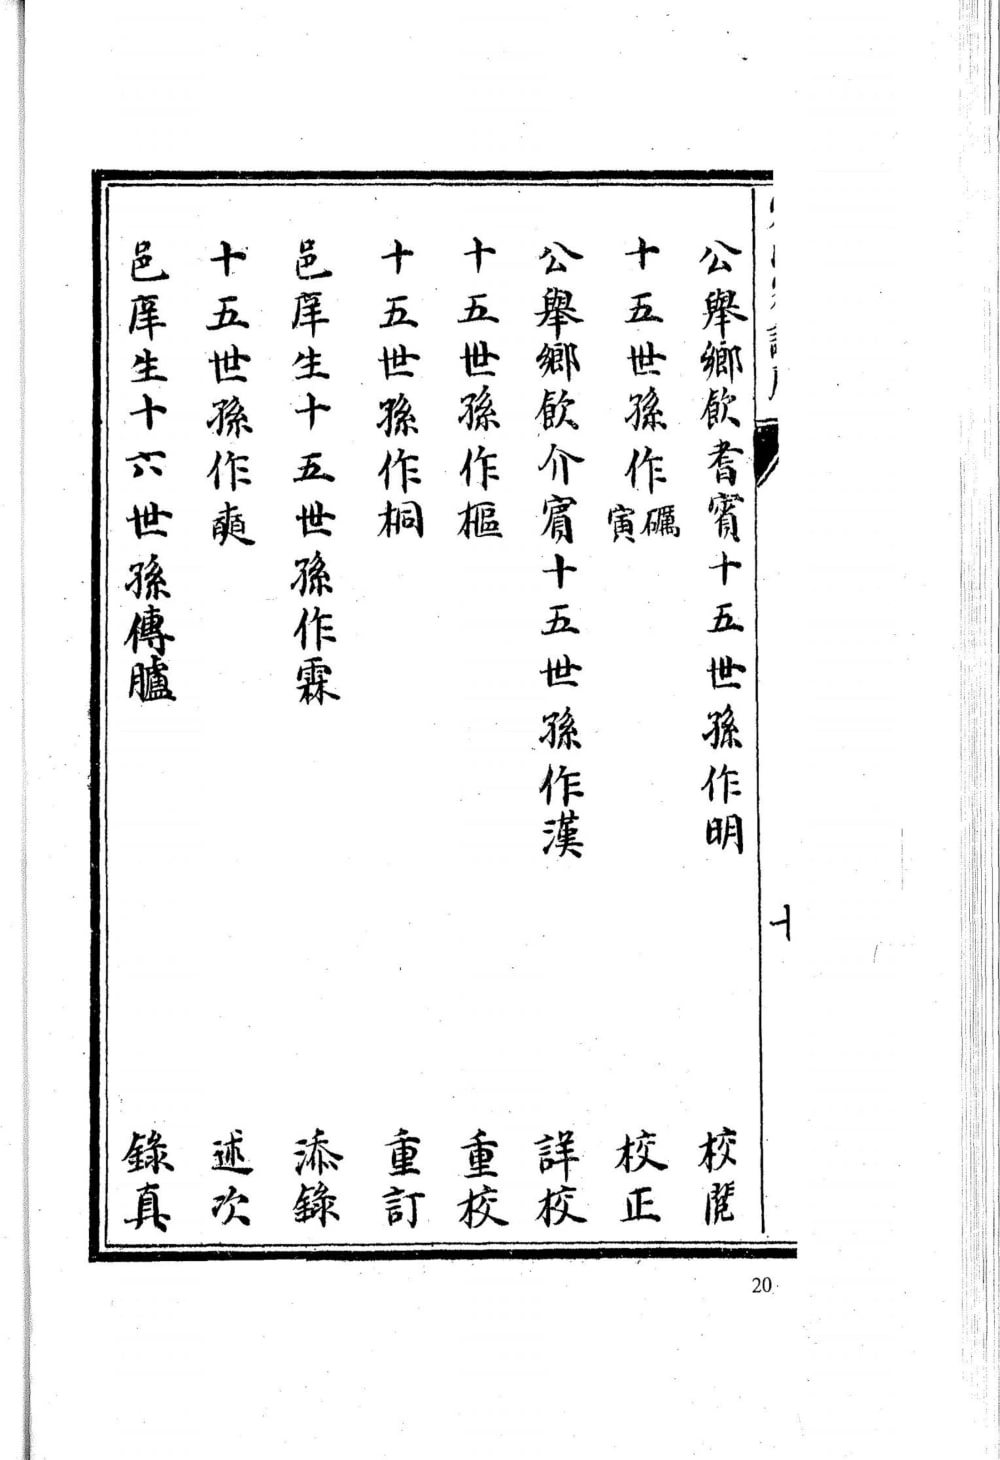 公舉鄉飲耆賓十五世孫作明 校閱
十五世孫作礪寅 校正
公舉鄉飲介賓十五世孫作漢 詳校
十五世孫作樞 重校
十五世孫作桐 重訂
邑庠生十五世孫作霖 添錄
十五世孫作奭 述次
邑庠生十六世孫傳臚 錄真
十
20